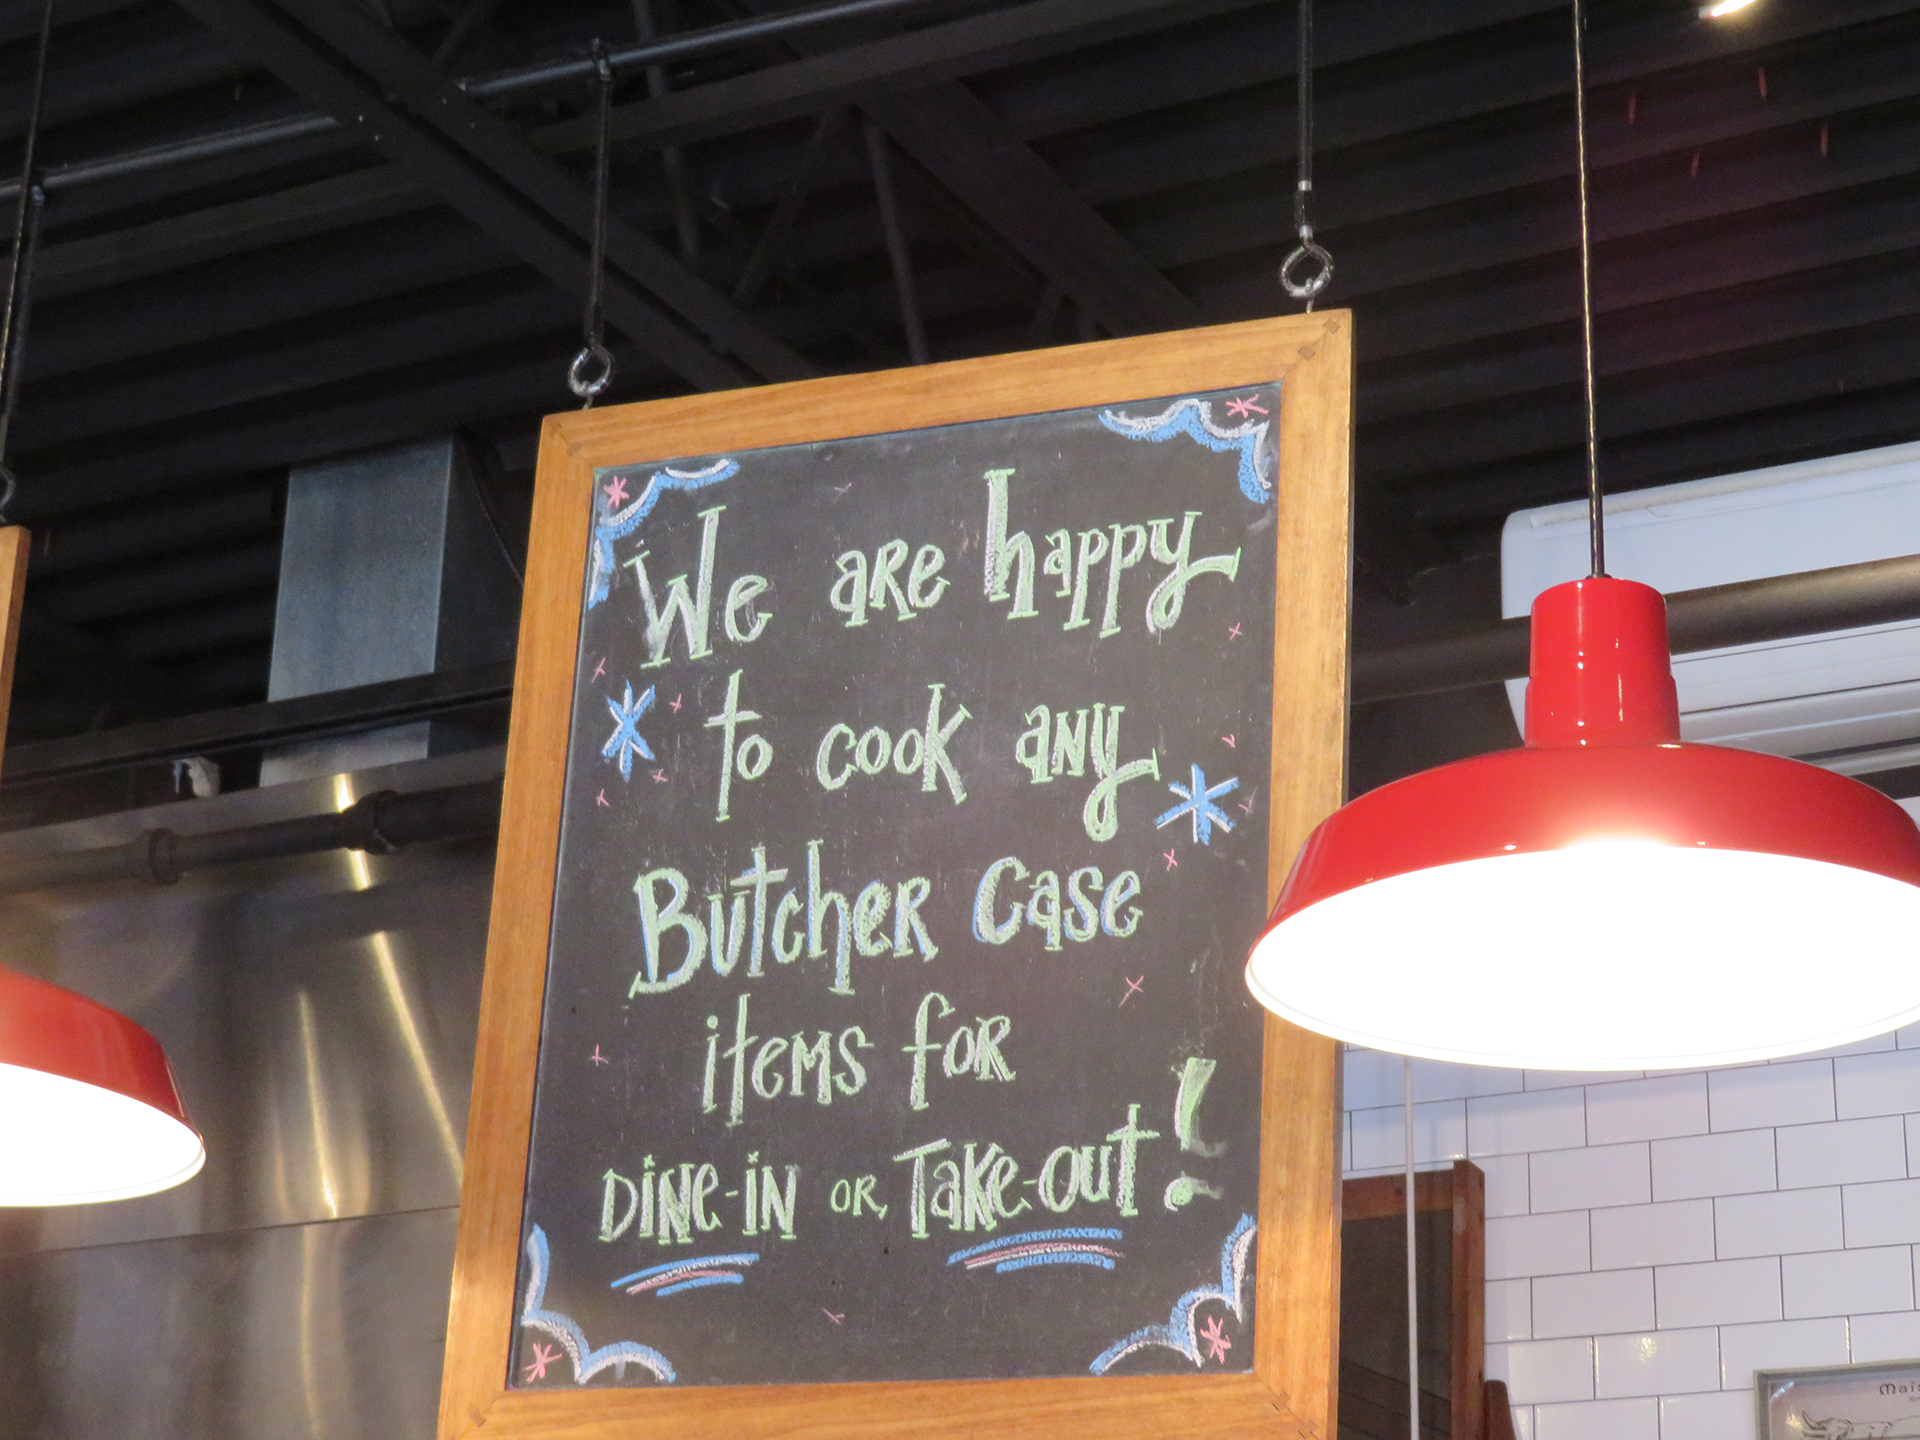 We are happy
to cook any
Butcher Case
items for
Dine-in or Take-out!